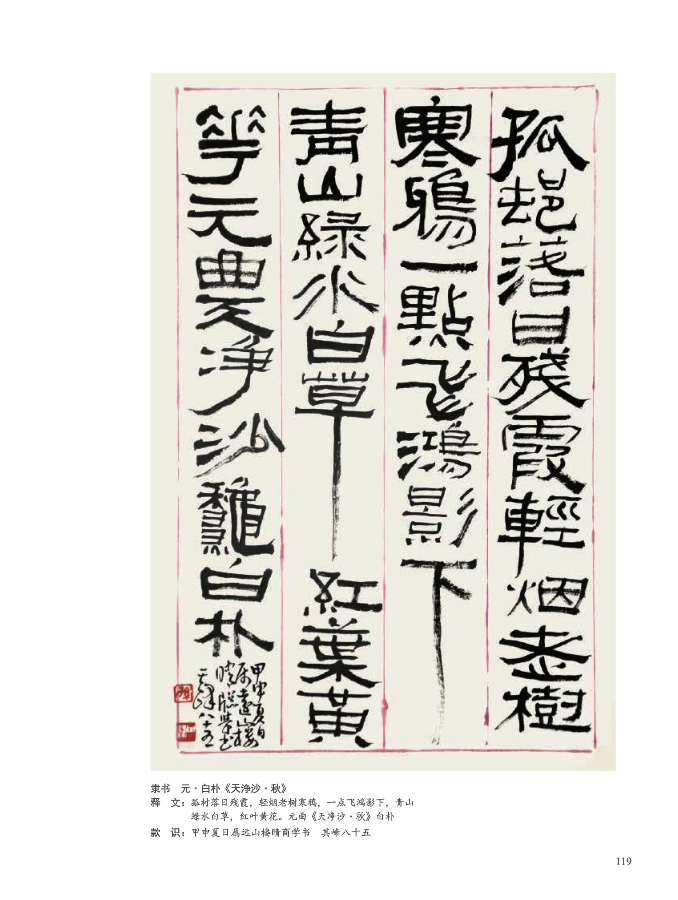 孤邨落日殘霞輕烟老樹
寒鴉一點飛鴻影下
青山綠水白草 紅葉黃
華元曲天淨沙龝白朴
甲申夏日
属遠山樓
晴牕學書
其峰八十五
隶书 元·白朴《天净沙·秋》
释 文：孤村落日残霞，轻烟老树寒鸦，一点飞鸿影下，青山
绿水白草，红叶黄花。元曲《天净沙·秋》白朴
款 识：甲申夏日属远山楼晴窗学书 其峰八十五
119